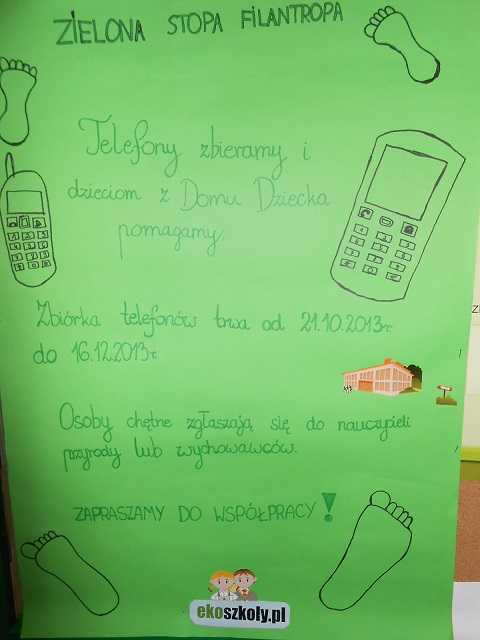 ZIELONA STOPA FILANTROPA
Telefony zbieramy i
dzieciom z Domu Dziecka
pomagamy
Zbiórka telefonów trwa od 21.10.2013r.
do 16.12.2013r.
Osoby chętne zgłaszają się do nauczycieli
przyrody lub wychowawców.
ZAPRASZAMY DO WSPÓŁPRACY!
ekoszkoly.pl